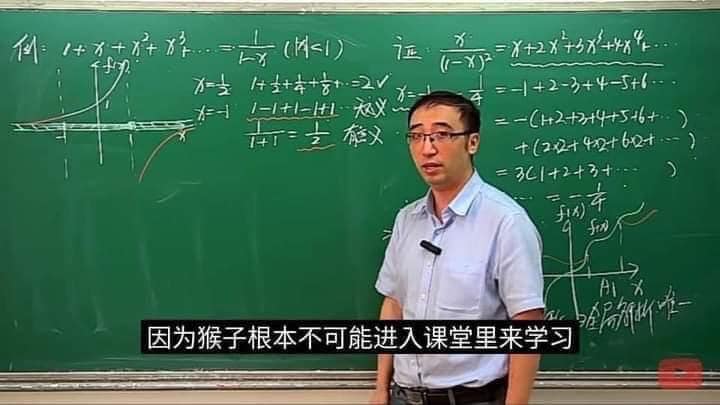 例: 1+x+x²+x³+⋯=1/(1-x) (|x|<1)
f(x)
1
x=1/2 1+1/2+1/4+1/8+⋯=2✓
x=-1 1-1+1-1+1⋯ 无义
1/(1+1)=1/2 有义
证: x/(1-x)²=x+2x²+3x³+4x⁴+⋯
x=-1 -1/4=-1+2-3+4-5+6⋯
=-(1+2+3+4+5+6+⋯)
+(2×2+4×2+6×2+⋯)
=3(1+2+3+⋯ )
⋯=-1/4
f(x)
f(x)
x
全局解析 唯一
因为猴子根本不可能进入课堂里来学习